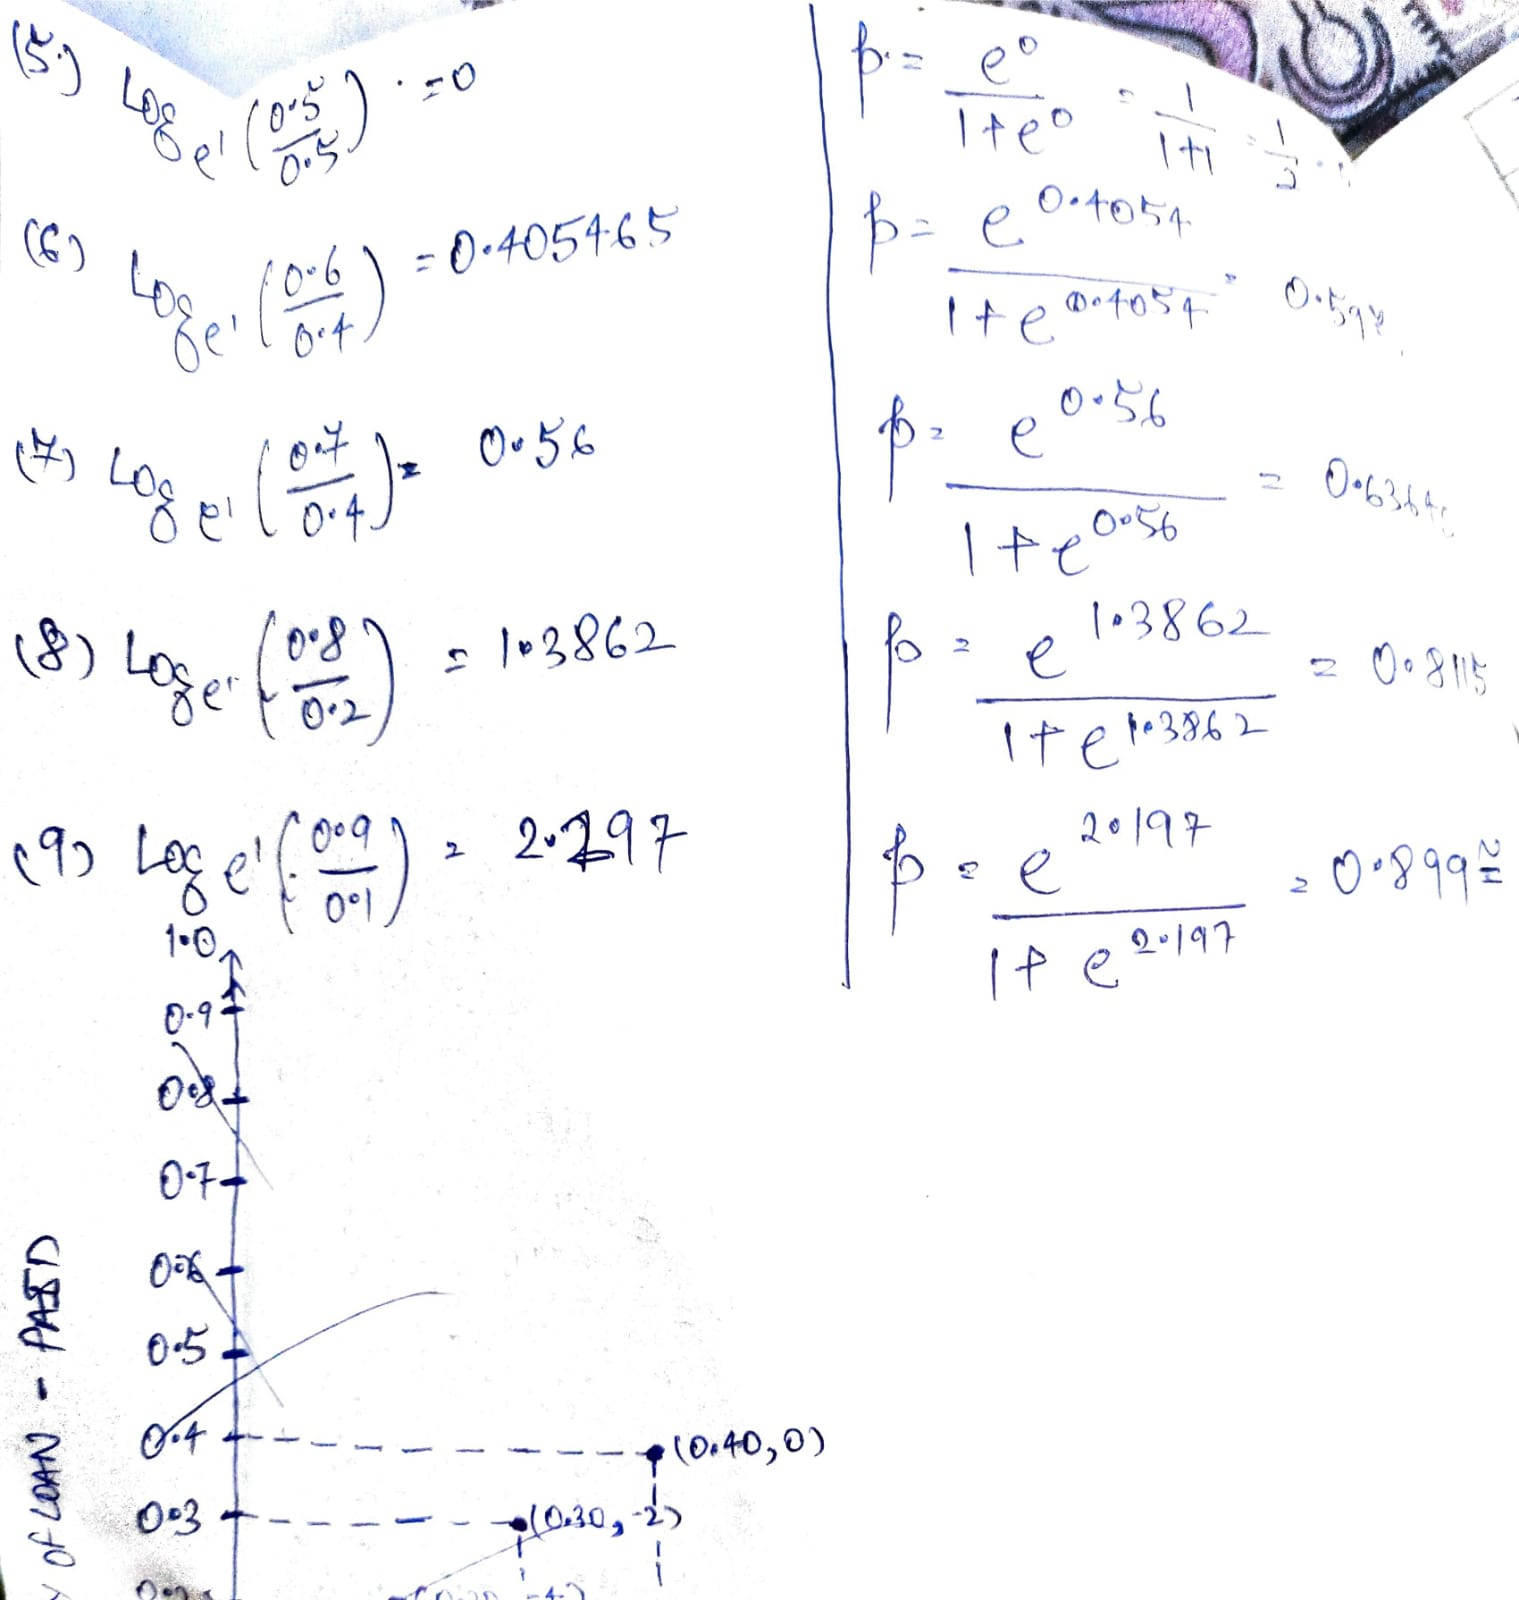 (5.) Log e¹ (0.5/0.5) = 0
(6) Log e¹ (0.6/0.4) = 0.405465
(7) Log e¹ (0.7/0.4) = 0.56
(8) Log e¹ (0.8/0.2) = 1.3862
(9) Log e¹ (0.9/0.1) = 2.197
p = e^0 / 1+e^0 = 1/1+1 = 1/2
p = e^0.4054 / 1+e^0.4054 =
p = e^0.56 / 1+e^0.56 =
p = e^1.3862 / 1+e^1.3862 = 0.8115
p = e^2.197 / 1+e^2.197 = 0.899 ≅
1.0
0.9
0.8
0.7
0.6
0.5
0.4 (0.40, 0)
0.3 (0.30, -2)
OF LOAN - PAID